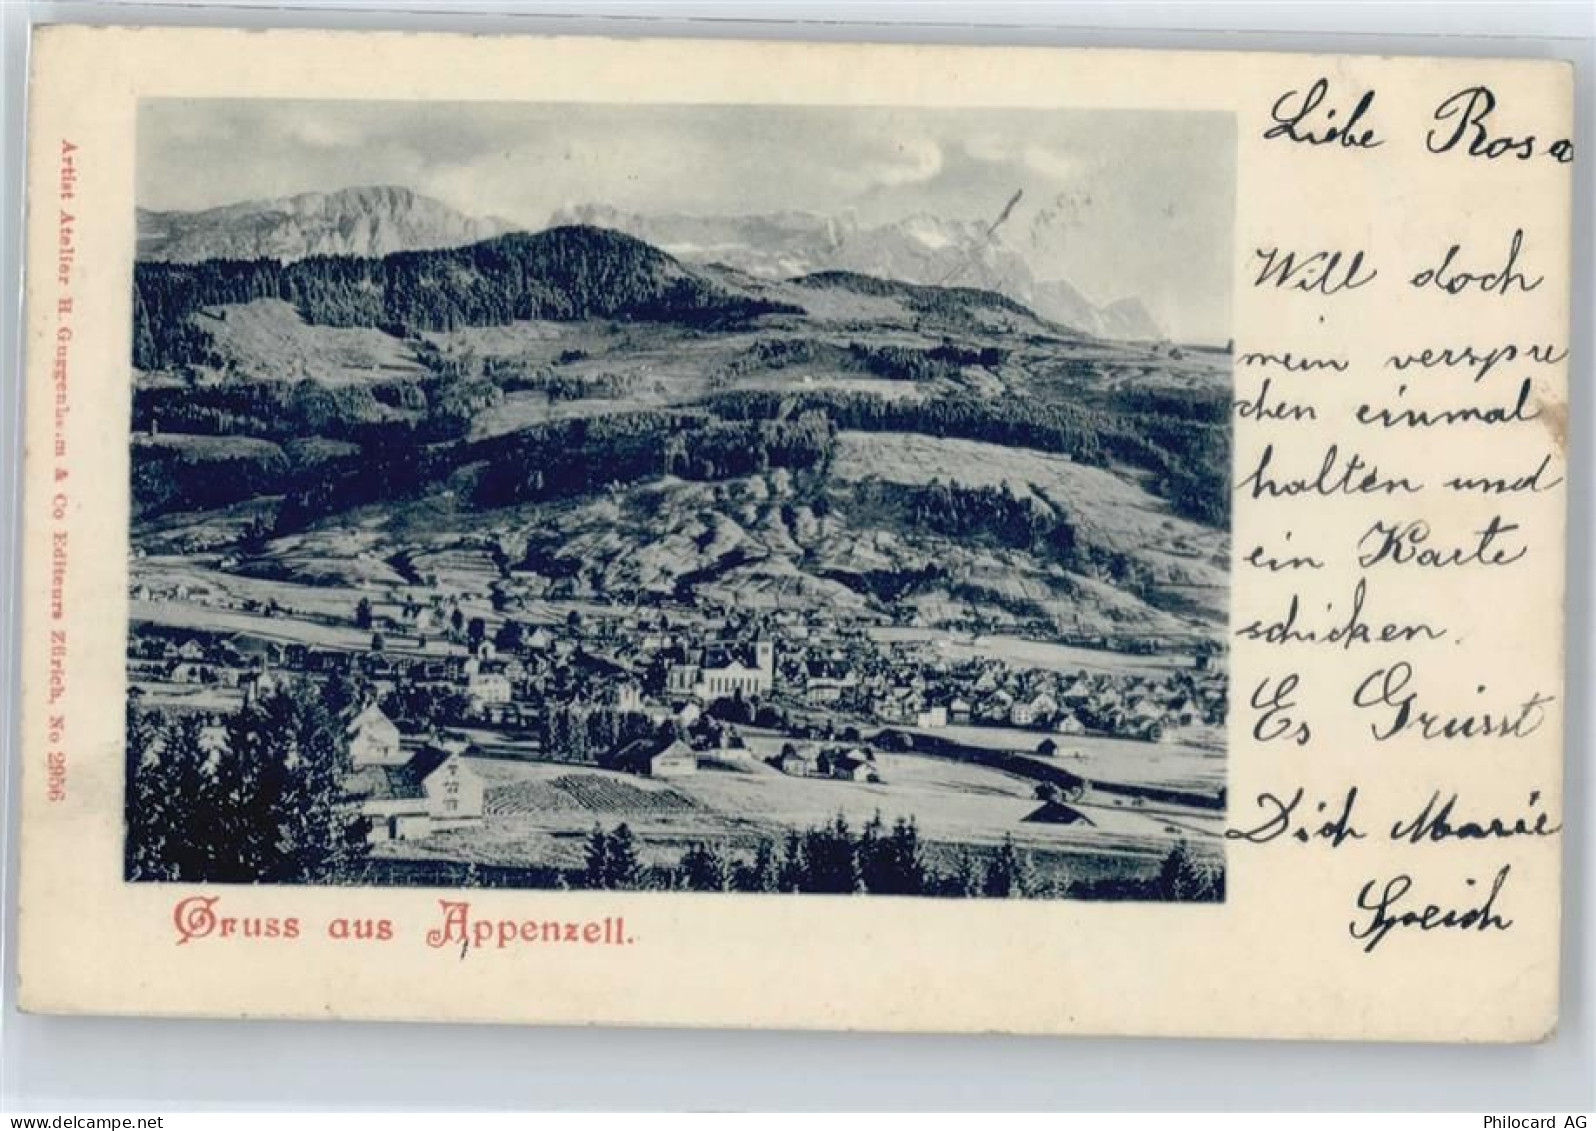 Artist Atelier H. Guggenheim & Co Editeurs Zürich, No 2956
Liebe Rosa
Will doch
mein verspre
chen einmal
halten und
ein Karte
schicken.
Es Grüsst
Dich Marie
Speich
Gruss aus Appenzell.
Philocard AG